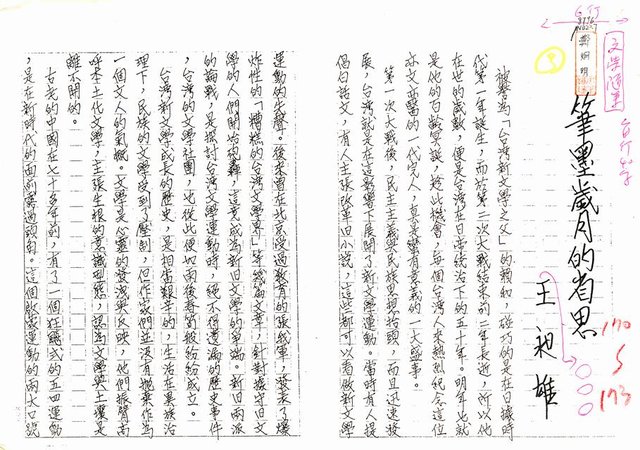 文學隨筆
台行字
6行
鄭炯明
筆墨歲月的省思
王昶雄
170
5
173
被譽為「台灣新文學之父」的賴和,碰巧的是在日據時
代第一年誕生,而於第二次大戰結束前二年長逝,所以他
在世的歲數,便是台灣在日帝統治下的五十年。明年也就
是他的百齡冥誕,趁此機會,每個台灣人來熱烈紀念這位
亦文亦醫的一代完人,真是深有意義的一大盛事。
第一次大戰後,民主主義與民族思想抬頭,而且迅速發
展,台灣就是在這影響下展開了新文學運動。當時有人提
倡白話文,有人主張改革旧小說,這些都可以看做新文學
運動的先聲。後來曾在北京受過教育的張我軍,發表了爆
炸性的「糟糕的台灣文學界」等幾篇文章,針對據守旧文
學的人們開始炮轟,這竟成為新旧文學的爭端。新旧兩派
的論戰,是探討台灣文學運動時,絕不得遺漏的歷史事件
。台灣的文學社團,也從此便如雨後春筍般紛紛成立。
台灣新文學成長的歷史,是相當艱辛的,生活在異族治
理下,民族的文學受到了壓制,但作家們並沒有拋棄作為
一個文人的氣概。文學是心靈的發洩與反映,他們振臂高
呼本土化文學,主張生根的意識型態,認為文學與土壤是
離不開的。
古老的中國在七十多年前,有了一個狂飆式的五四運動
,是在新時代的面前露過頭角。這個啟蒙運動的兩大口號